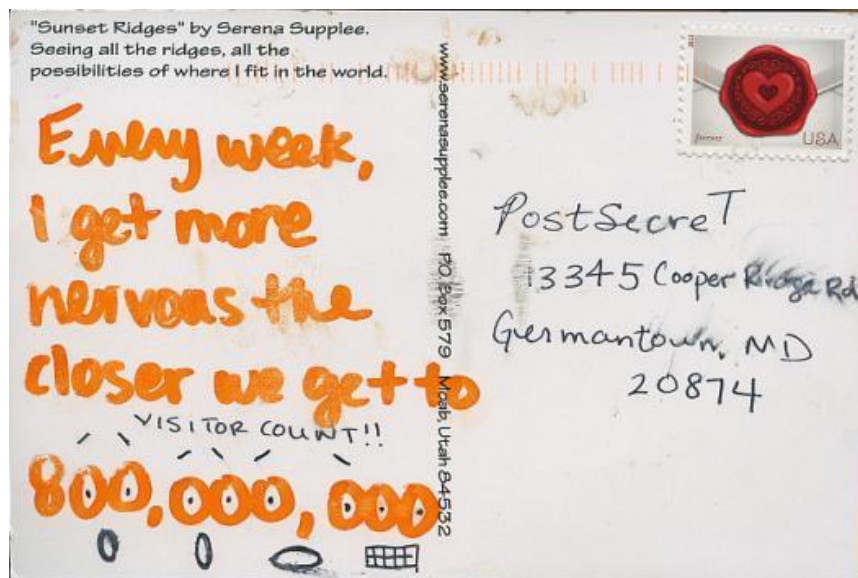 "Sunset Ridges" by Serena Supplee.
Seeing all the ridges, all the
possibilities of where I fit in the world.
Every week,
I get more
nervous the
closer we get to
VISITOR COUNT!!
800,000,000
www.serenasupplee.com P.O. Box 579 Moab, Utah 84532
forever
USA
PostSecreT
13345 Cooper Ridge Rd
Germantown, MD
20874